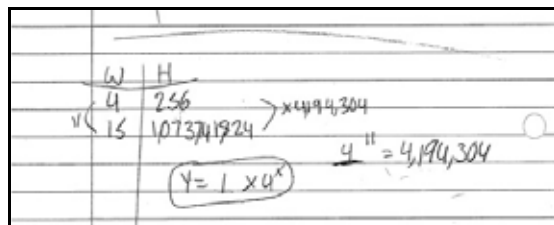 W H
4 256
11 15 1,073,741,824 ×4,194,304
4¹¹ = 4,194,304
Y = 1 × 4ˣ